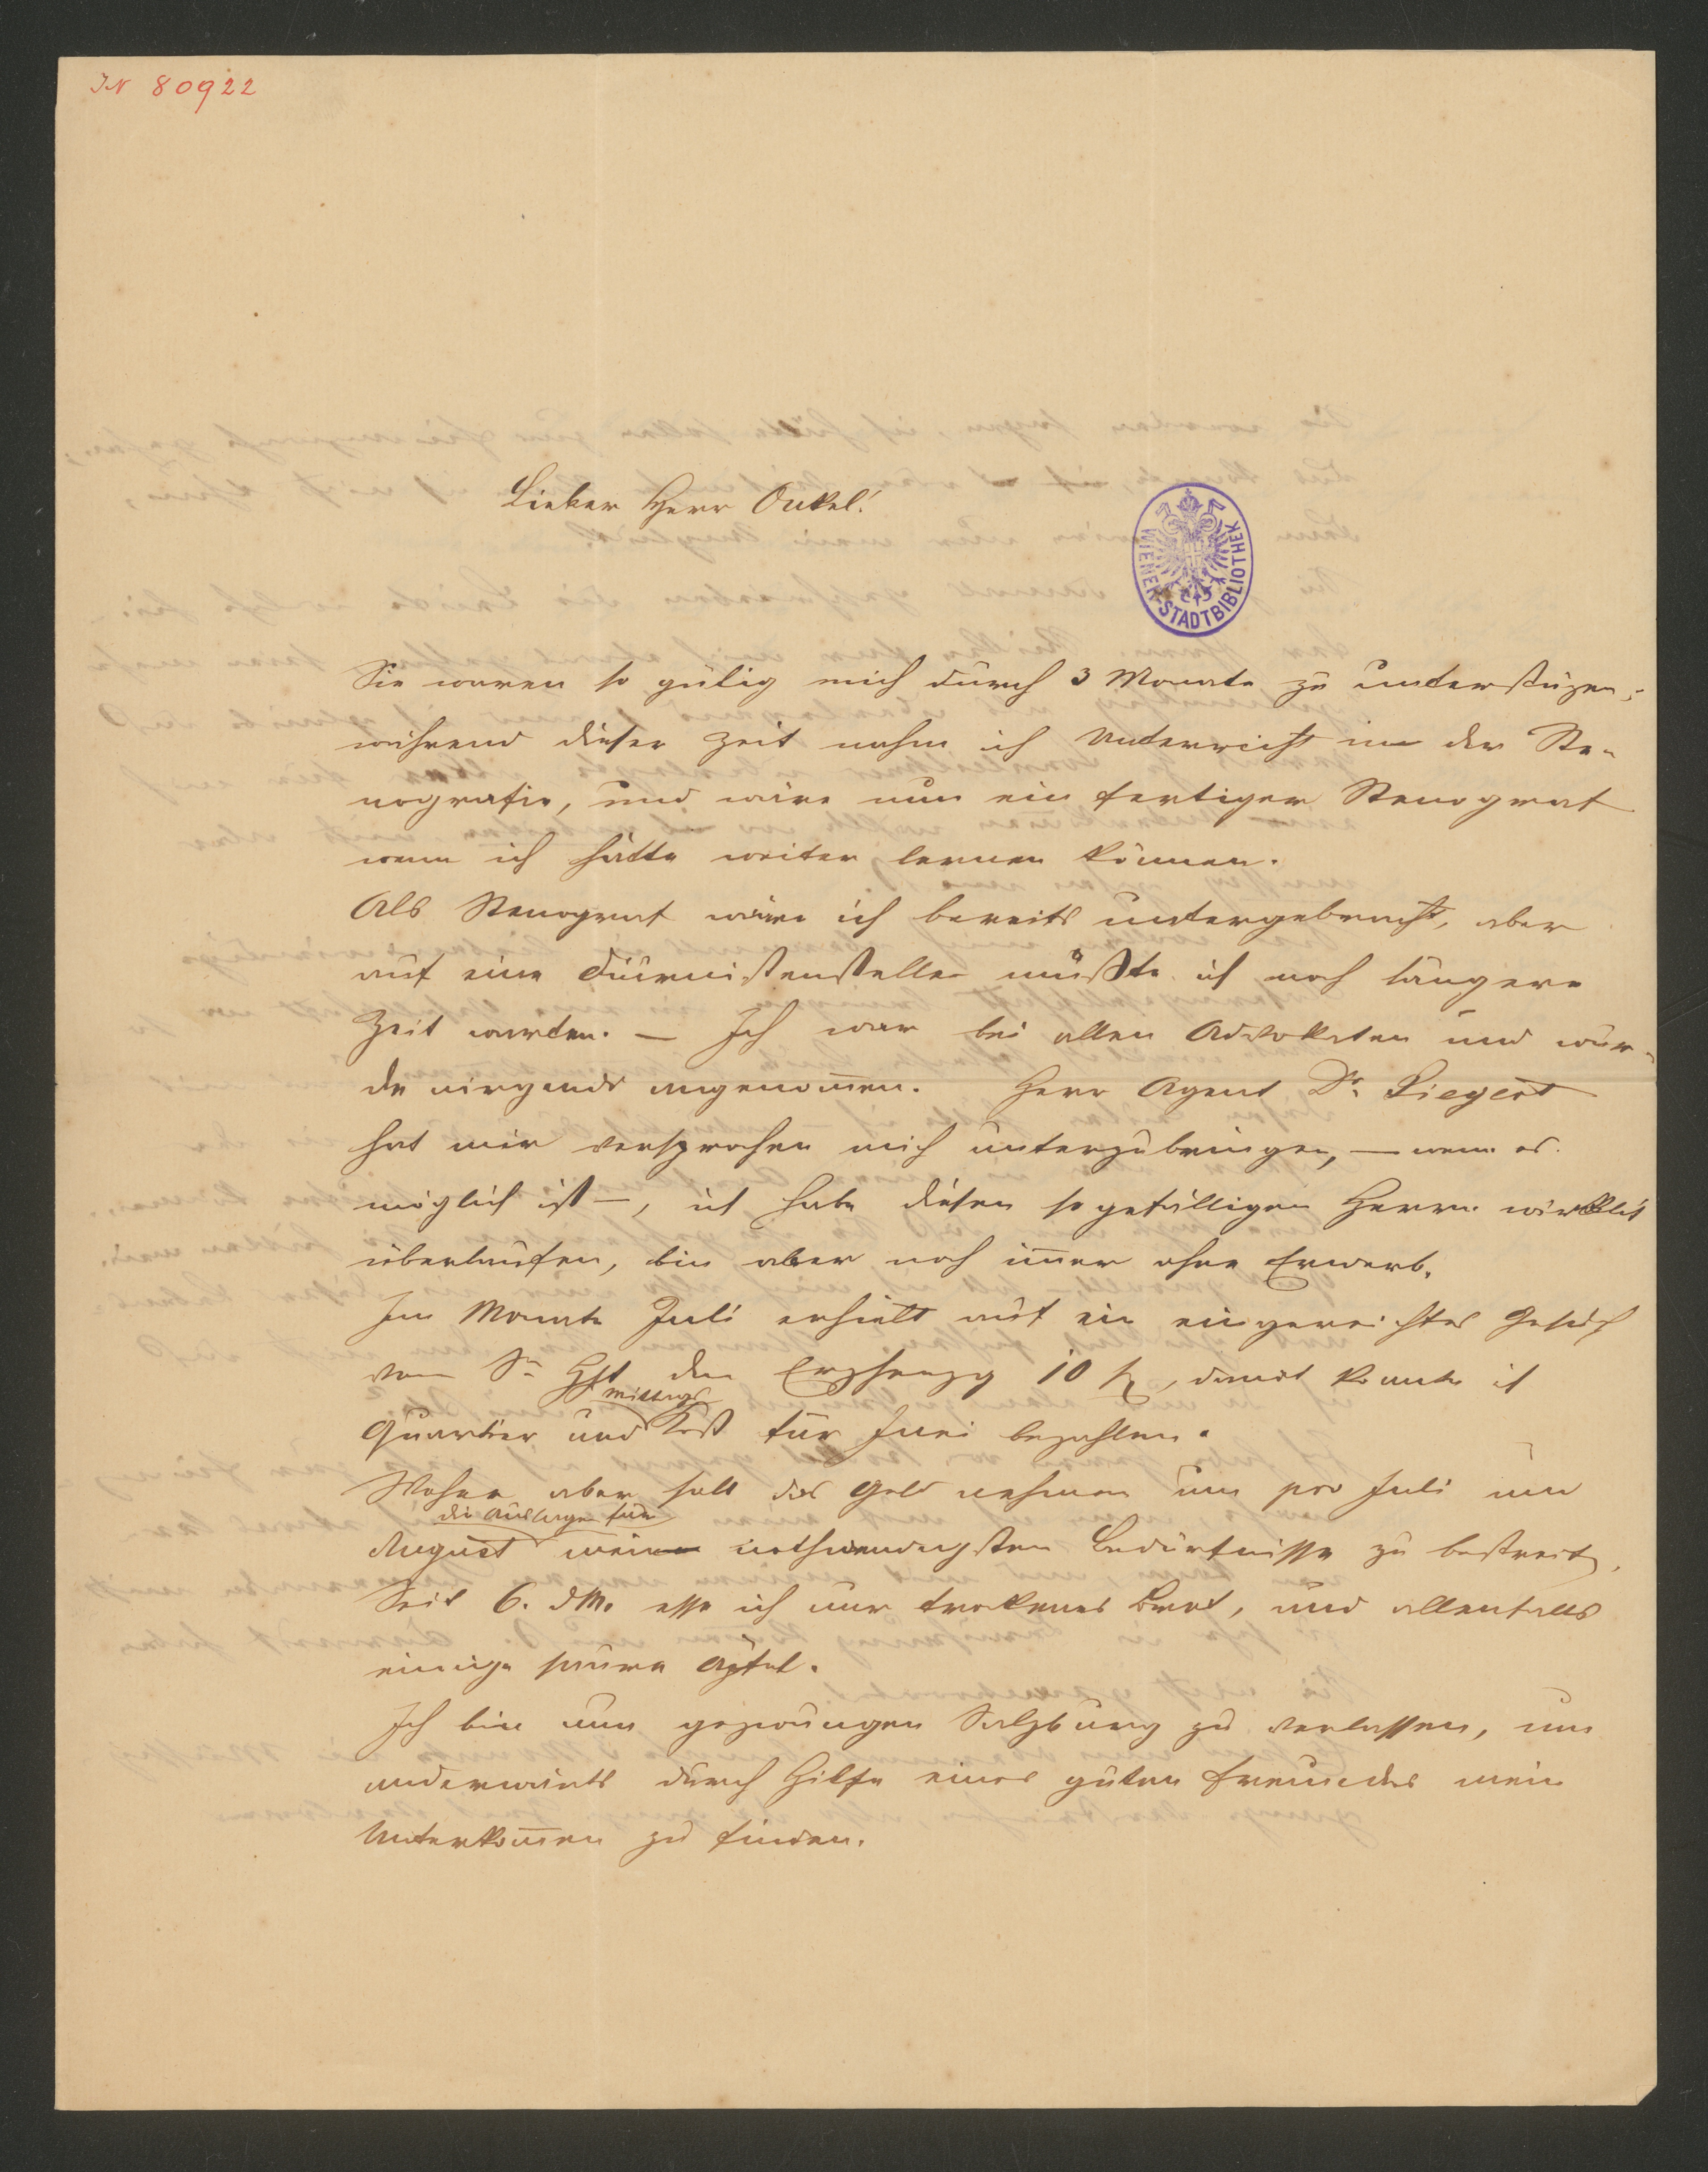 IN 80922
Lieber Herr Onkel!
WIENER STADTBIBLIOTHEK
Sie waren so gütig mich durch 3 Monate zu unterstüzen;
während dieser Zeit nahm ich Unterricht in der Ste-
nografie, und wäre nun ein fertiger Stenograf
wenn ich hätte weiter lernen können.
Als Stenograf wäre ich bereits untergebracht, aber
auf eine Diurnistenstelle müßte ich noch längere
Zeit warten. — Ich war bei allen Advokaten und wur-
de nirgends angenom̄en. Herr Agent Dr. Siegert
hat mir versprochen mich unterzubringen, — wenn es
möglich ist —, ich habe diesen so gefälligen Herrn wirklich
überlaufen, bin aber noch im̄er ohne Erwerb.
Im Monate Juli erhielt auf ein eingereichtes Gesuch
von Sr den Erzherzog 10 f, damit konnte ich
Mittags
Quartier und Kost für Juni bezahlen.
Woher aber soll das Geld nehmen um pro Juli und
die Auslagen für
August meine nothwendigsten Bedürfnisse zu bestreiten.
Seit 6. d M. esse ich nur trokenes Brot, und allenfalls
einige saure Äpfel.
Ich bin nun gezwungen Salzburg zu verlassen, um
anderwärts durch Hilfe eines guten Freundes mein
Unterkom̄en zu finden.